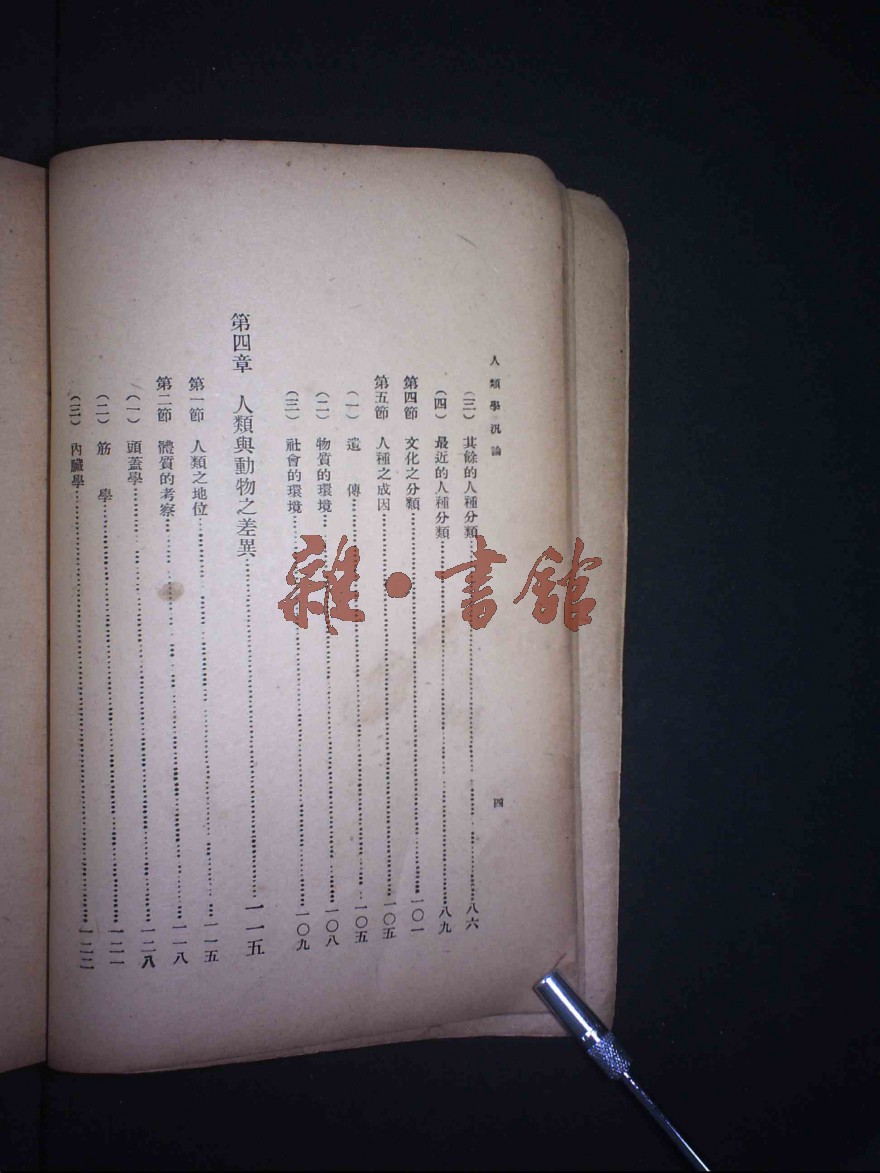 人類學汎論
四
(三) 其餘的人種分類……八六
(四) 最近的人種分類……八九
第四節 文化之分類……一〇一
第五節 人種之成因……一〇五
(一) 遺傳……一〇五
(二) 物質的環境……一〇八
(三) 社會的環境……一〇九
第四章 人類與動物之差異……一一五
第一節 人類之地位……一一五
第二節 體質的考察……一一八
(一) 頭蓋學……一二八
(二) 筋學……一二一
(三) 內臟學……一二二
雜·書館